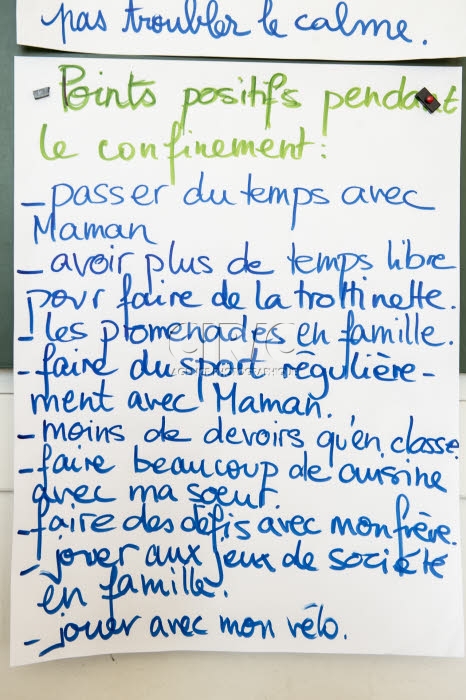 pas troubler le calme.
Points positifs pendant
le confinement :
- passer du temps avec
Maman
- avoir plus de temps libre
pour faire de la trottinette.
- les promenades en famille.
- faire du sport régulière-
ment avec Maman.
- moins de devoirs qu'en classe
- faire beaucoup de cuisine
avec ma soeur.
- faire des défis avec mon frère.
- jouer aux jeux de société
en famille.
- jouer avec mon vélo.